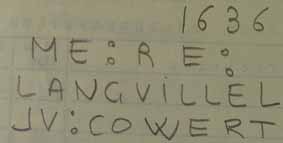 1636
ME:RE:
LANGViLLEL
JV:COWERT